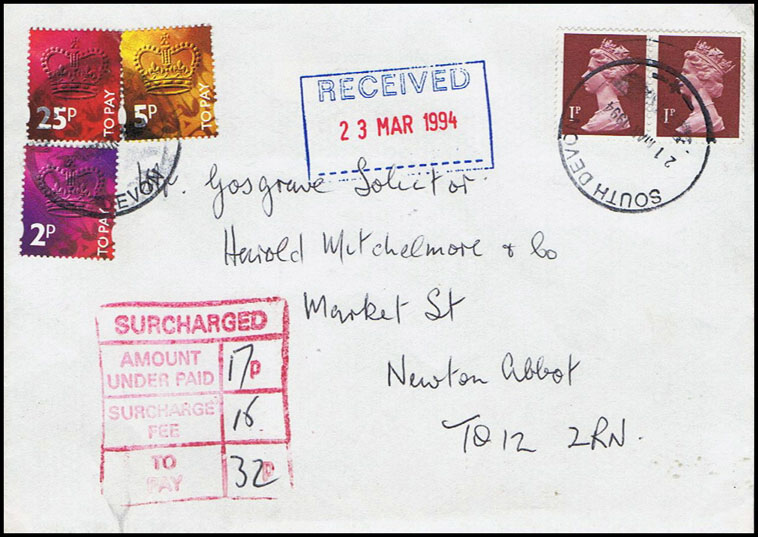 25P TO PAY
5P TO PAY
2P TO PAY
DEVON
RECEIVED
23 MAR 1994
1P
1P
SOUTH DEVON
21 1994
Gosgrave Solicitor
Harold Mitchelmore & Co
Market St
Newton Abbot
TQ12 2RN.
SURCHARGED
AMOUNT UNDER PAID 17p
SURCHARGE FEE 15.
TO PAY 32p